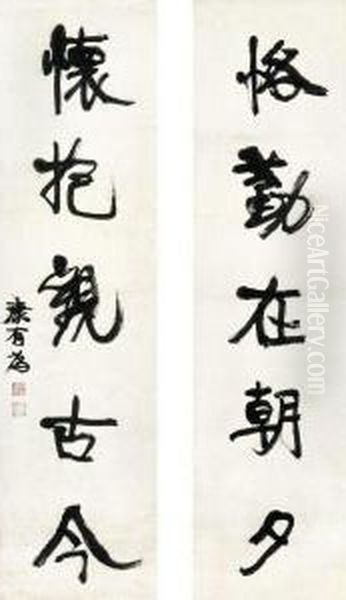 恪勤在朝夕
懷抱觀古今
康有為
NiceArtGallery.com